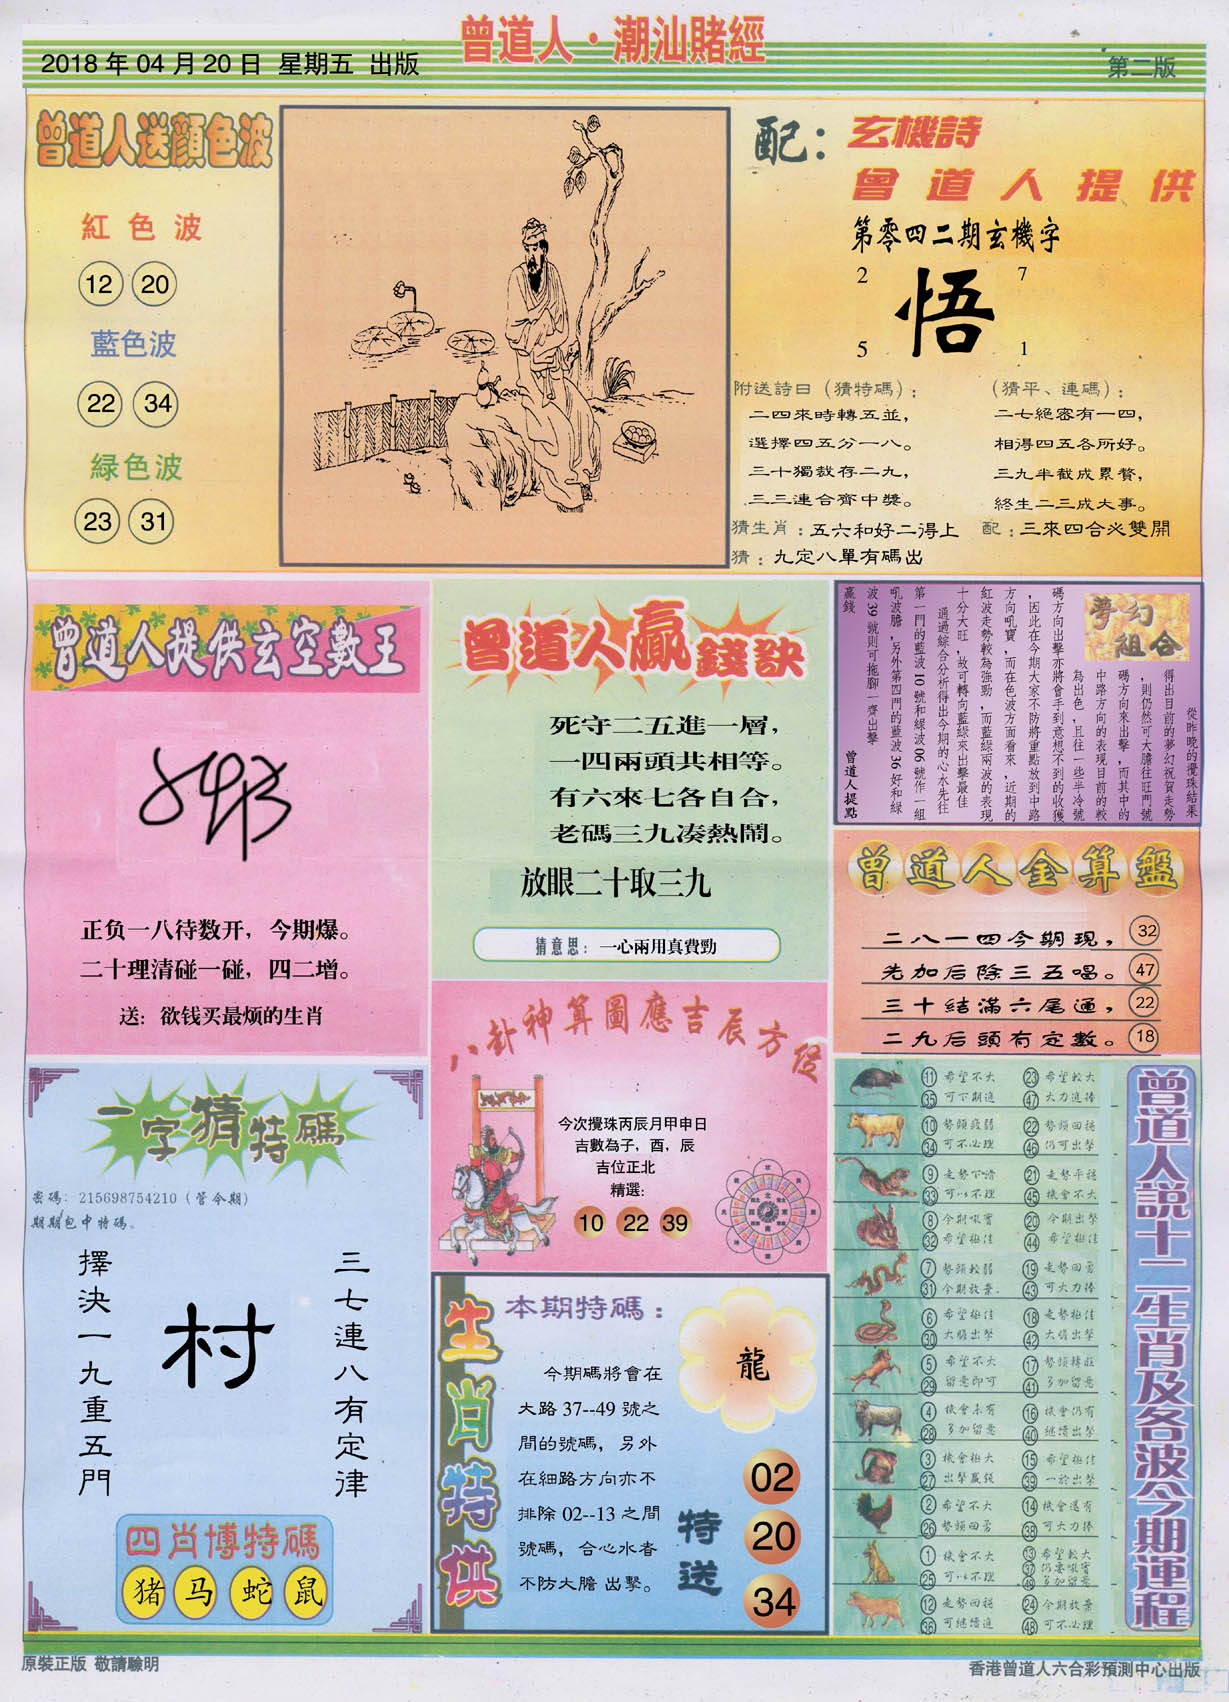 曾道人·潮汕賭經
2018年04月20日 星期五 出版
第二版
曾道人送顏色波
紅色波
12 20
藍色波
22 34
緑色波
23 31
配：玄機詩
曾道人提供
第零四二期玄機字
2 7
悟
5 1
附送詩曰（猜特碼）：
二四來時轉五並，
選擇四五分一八。
三十獨裁存二九，
三三連合齊中獎。
（猜平、連碼）：
二七絕密有一四，
相得四五各所好。
三九半截成累贅，
終生二三成大事。
猜生肖：五六和好二得上
配：三來四合必雙開
猜：九定八單有碼出
曾道人提供玄空數王
正负一八待数开，今期爆。
二十理清碰一碰，四二增。
送：欲钱买最烦的生肖
曾道人贏錢訣
死守二五進一層，
一四兩頭共相等。
有六來七各自合，
老碼三九凑熱鬧。
放眼二十取三九
猜意思：一心兩用真費勁
夢幻
組合
從昨晚的攪珠結果
得出目前的夢幻祝賀走勢
，則仍然可大膽往旺門號
碼方向來出擊，而其中的
中路方向的表現目前的較
為出色，且往一些半冷號
碼方向出擊亦將會手到意想不到的收獲
，因此在今期大家不防將重點放到中路
方向吼寶，而在色波方面看來，近期的
紅波走勢較為強勁，而藍綠兩波的表現
十分大旺，故可轉向藍綠來出擊最佳
通過綜合分析得出今期的心水先往
第一門的藍波10號和緑波06號作一組
吼波膽，另外第四門的藍波36好和緑
波39號則可拖腳一齊出擊
贏錢
曾道人提點
曾道人金算盤
二八一四今期現， 32
先加后除三五唱。 47
三十結滿六尾通， 22
二九后頭有定數。 18
八卦神算圖應吉辰方位
今次攪珠丙辰月甲申日
吉數為子，酉，辰
吉位正北
精選：
10 22 39
一字猜特碼
密碼：215698754210（管令期）
期期包中特碼。
三七連八有定律
村
擇決一九重五門
四肖博特碼
猪 马 蛇 鼠
生肖特供
本期特碼：
龍
今期碼將會在
大路37--49號之
間的號碼，另外
在細路方向亦不
排除02--13之間
號碼，合心水者
不防大膽出擊。
特送
02
20
34
曾道人説十二生肖及各波今期運程
11 希望不大 23 希望較大
35 可下期進 47 大力進捧
10 勢頭疲弱 22 勢頭回穩
34 可不必理 46 仍可出擊
9 走勢下滑 21 走勢平穩
33 可以不理 45 機會不大
8 今期吼寶 20 今期出擊
32 希望極佳 44 希望極佳
7 勢頭較弱 19 走勢回勇
31 今期放棄 43 可大力捧
6 今期機會 18 走勢極佳
30 大膽出擊 42 大膽出擊
5 希望不大 17 勢頭轉旺
29 留意即可 41 多加留意
4 機會未有 16 機會仍有
28 多加留意 40 繼續出擊
3 機會極大 15 希望極佳
27 出擊贏錢 39 一於出擊
2 希望不大 14 機會還有
26 勢頭回勇 38 可大力捧
1 機會不大 13 希望較大
25 可以不理 37 仍要吼寶
49 多加留意
12 走勢回穩 24 今期放棄
36 可繼續進 48 可不必理
原裝正版 敬請驗明
香港曾道人六合彩預測中心出版